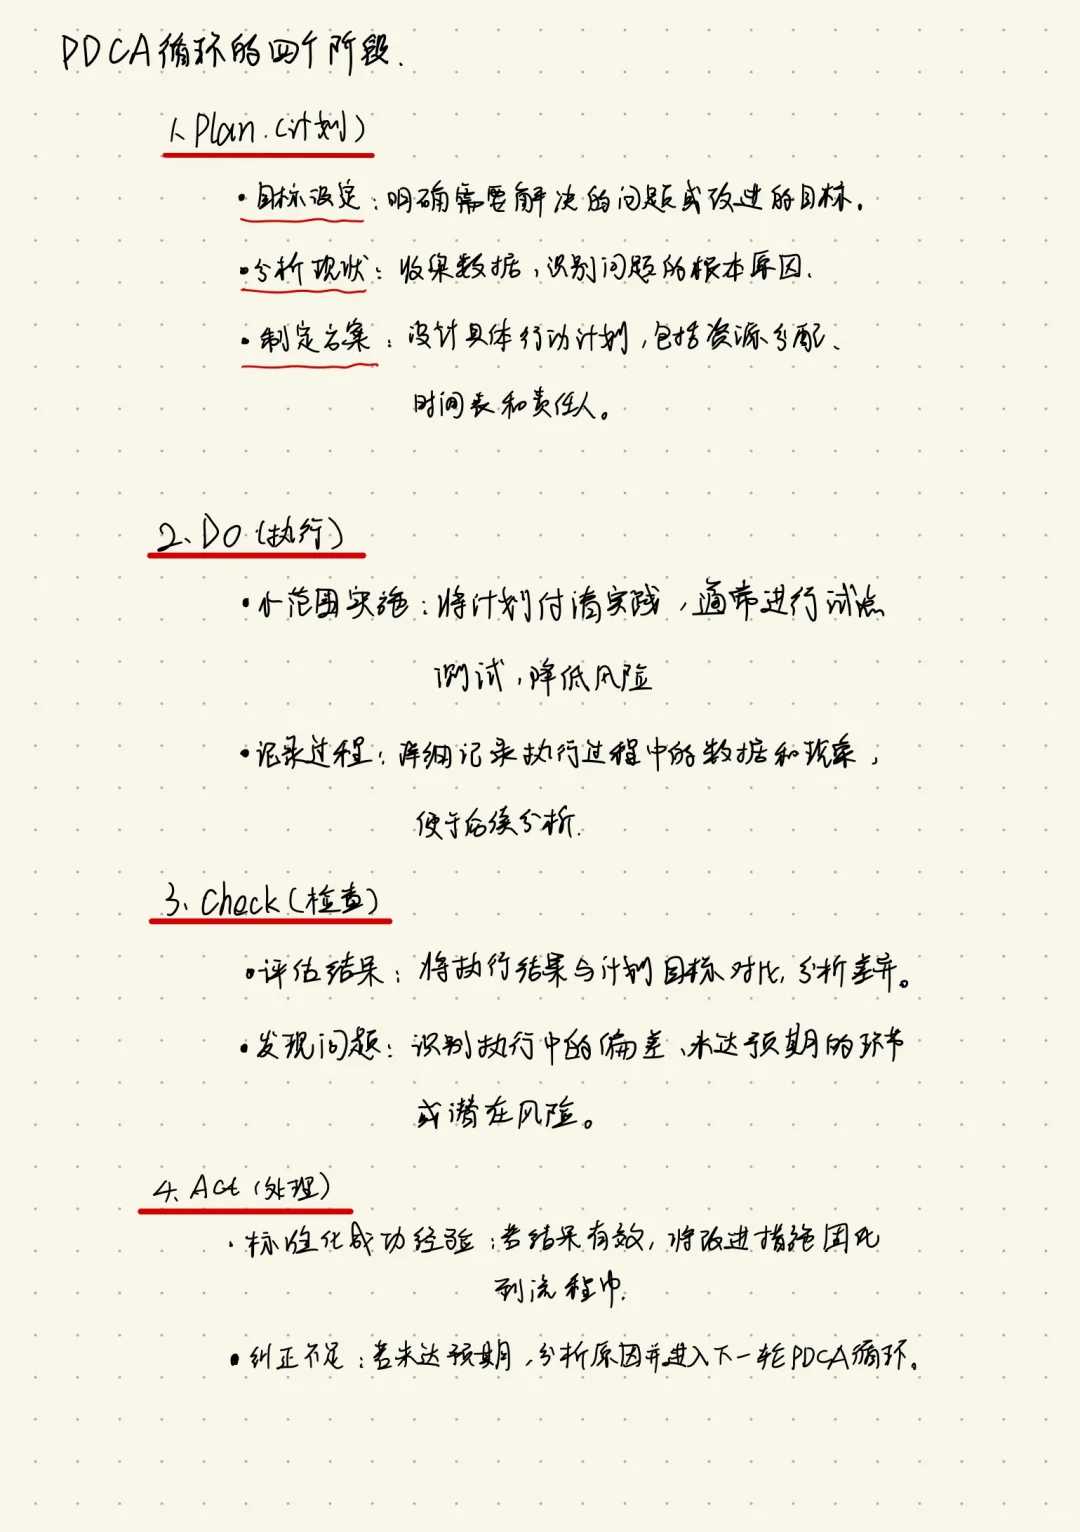 PDCA循环的四个阶段.
1、Plan.(计划)
•目标设定:明确需要解决的问题或改进的目标.
•分析现状:收集数据,识别问题的根本原因.
•制定方案:设计具体行动计划,包括资源分配、
时间表和责任人。
2、DO(执行)
•小范围实施:将计划付清实践,通常进行试点
测试,降低风险
•记录过程:详细记录执行过程中的数据和现象,
便于后续分析.
3、Check(检查)
•评估结果:将执行结果与计划目标对比,分析差异。
•发现问题:识别执行中的偏差、未达预期的环节
或潜在风险。
4、Act(处理)
•标准化成功经验:若结果有效,将改进措施固化
到流程中.
•纠正不足:若未达预期,分析原因并进入下一轮PDCA循环.